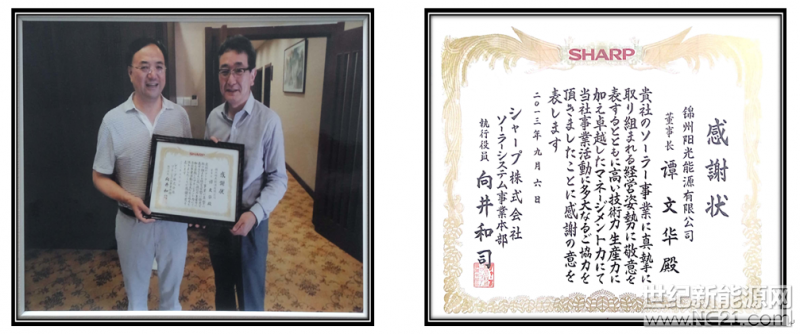 SHARP
感謝状
SHARP
感謝状
錦州阳光能源有限公司
董事长 谭文华殿
貴社のソーラー事業に真摯に
取り組まれる経営姿勢に敬意を
表するとともに高い技術力生産力に
加え卓越したマネージメント力にて
当社事業活動に多大なるご協力を
頂きましたことに感謝の意を
表します
二〇一三年九月六日
シャープ株式会社
ソーラーシステム事業本部
執行役員 向井和司
世纪新能源网
www.NE21.com